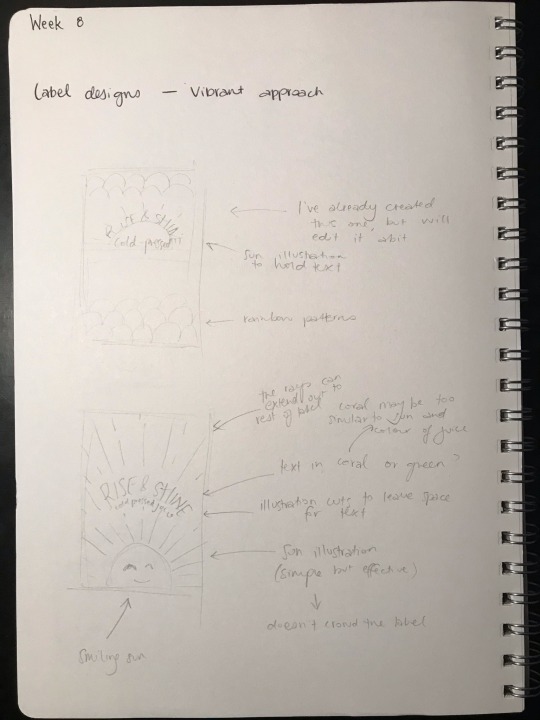 Week 8
Label designs — Vibrant approach
RISE & SHINE
Cold pressed
I've already created
this one, but will
edit it abit
Sun illustration
to hold text
rainbow patterns
the rays can
extend out to
rest of label
coral may be too
similar to sun and
colour of juice
text in coral or green?
RISE & SHINE
cold pressed juice
illustration cuts to leave space
for text
Sun illustration
(simple but effective)
doesn't crowd the label
Smiling sun